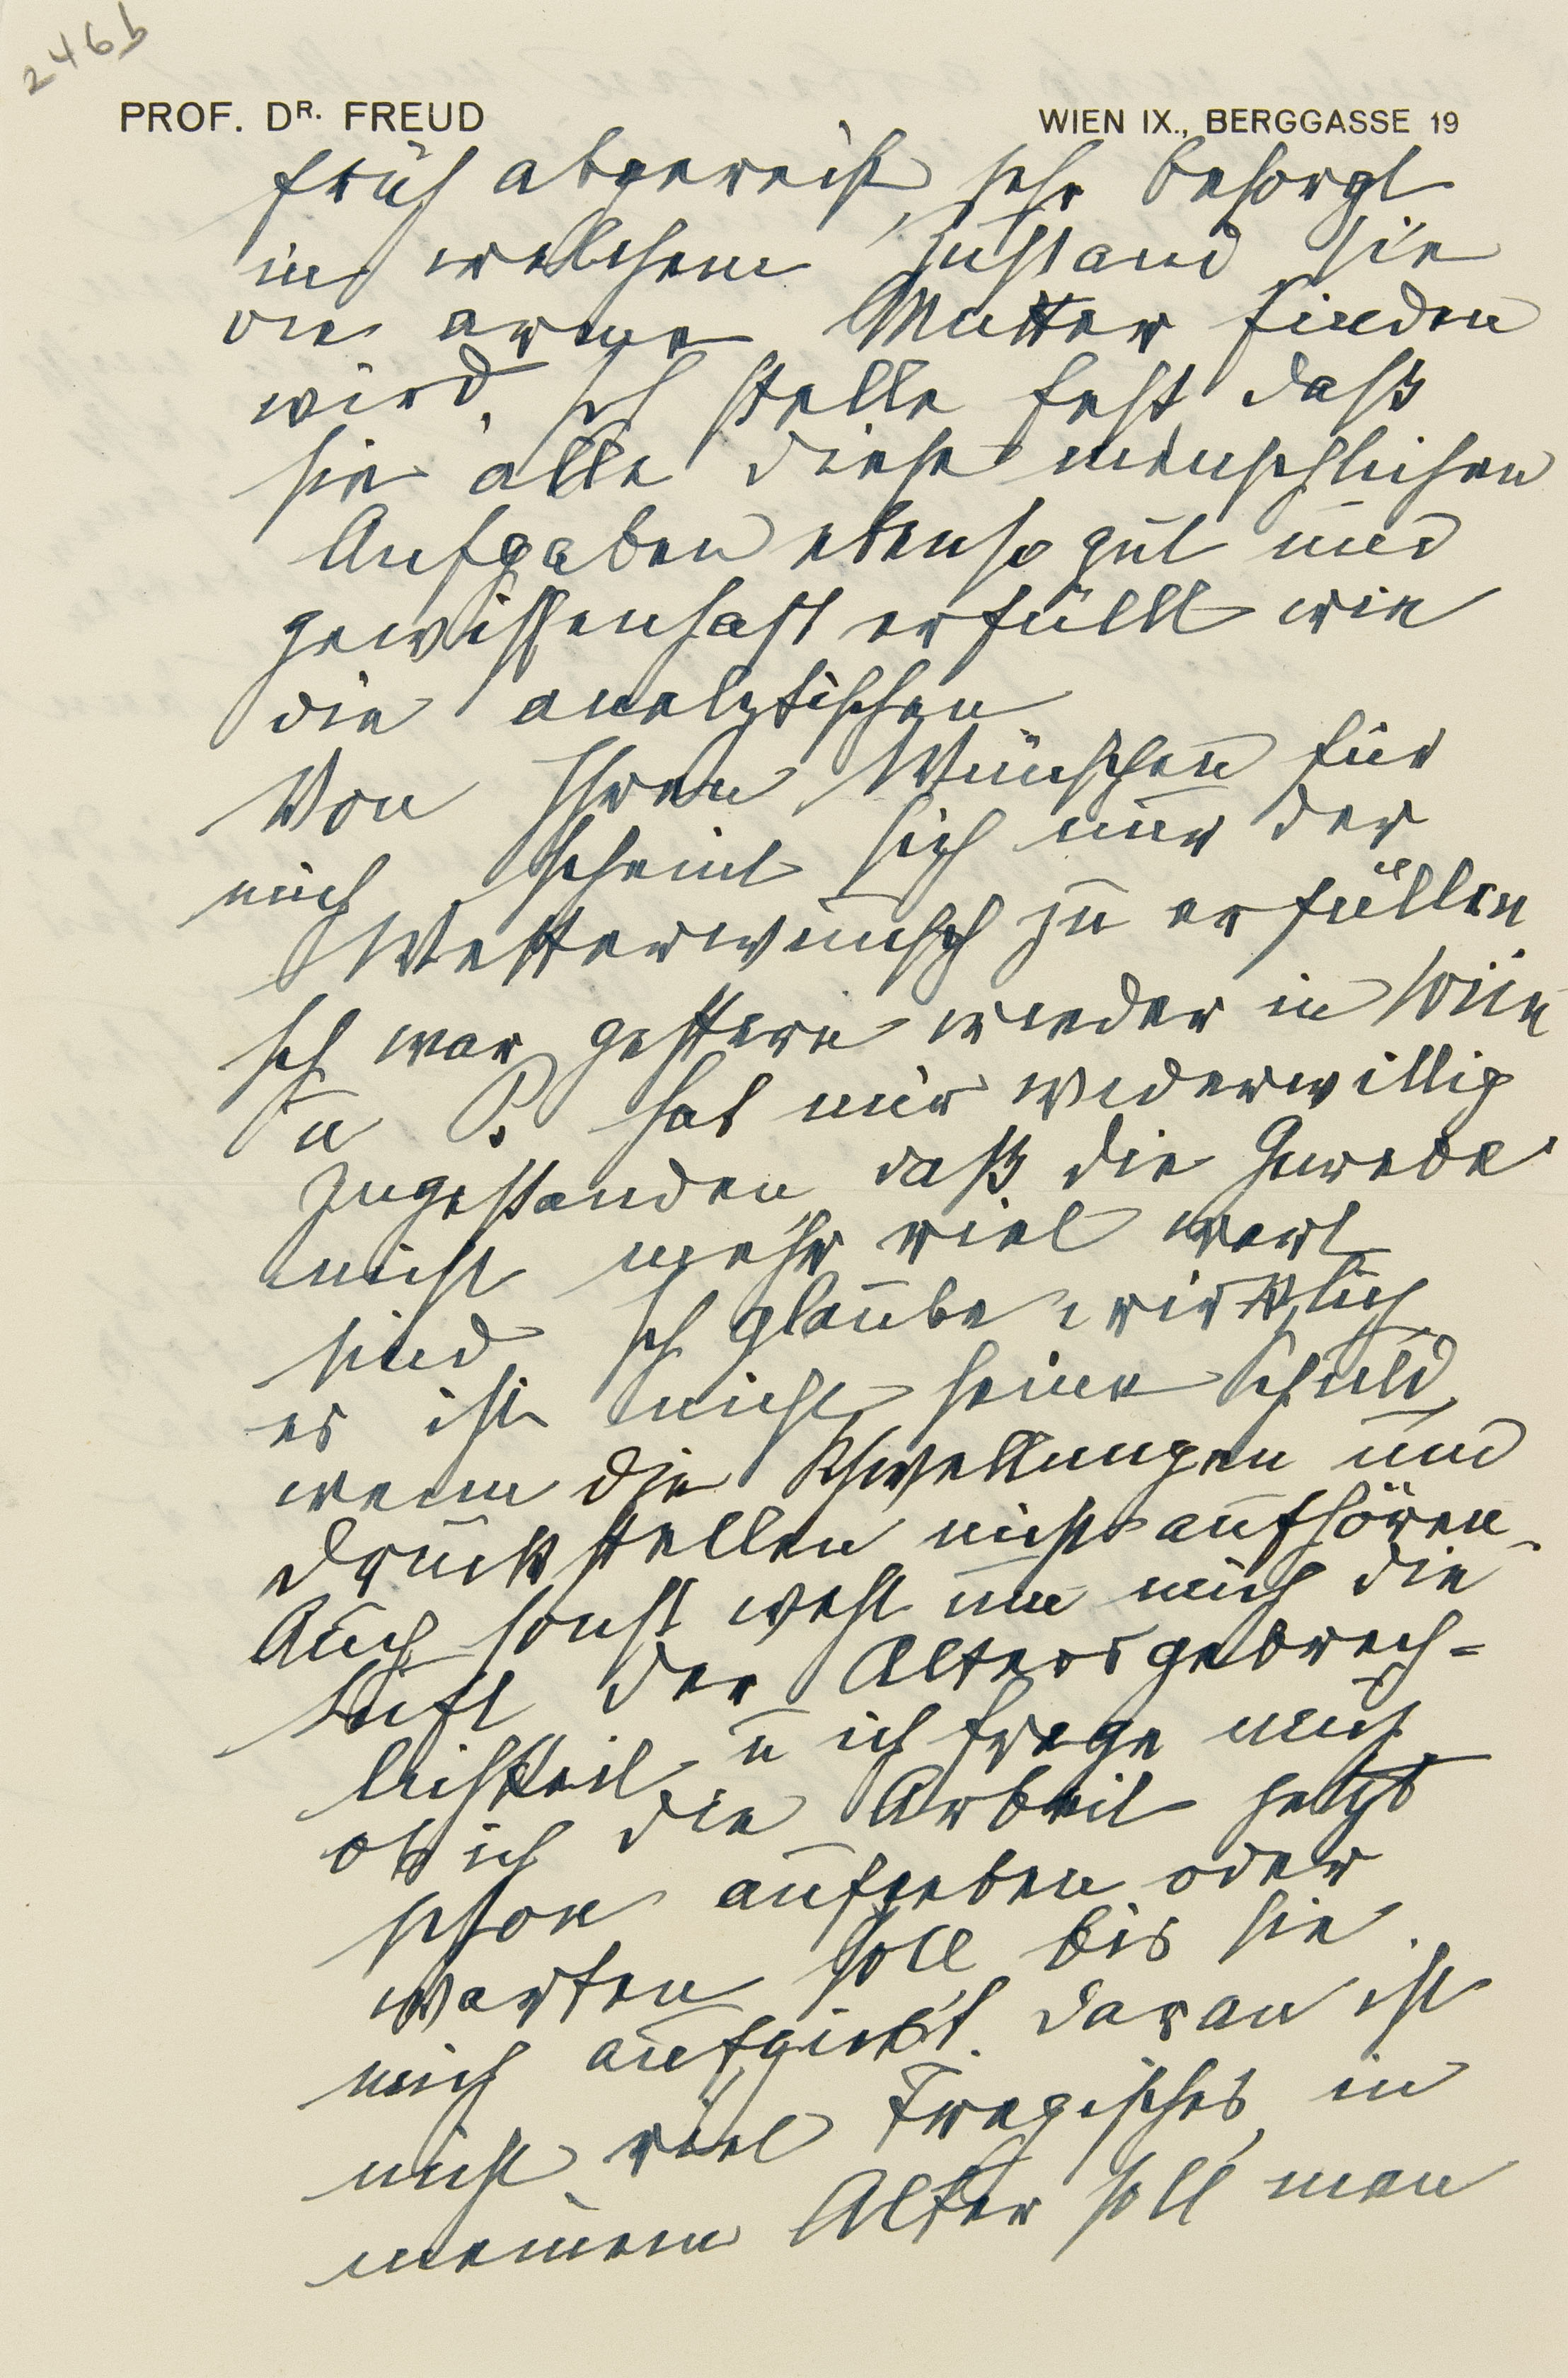 246b
PROF. DR. FREUD WIEN IX., BERGGASSE 19
früh abgereist, sehr besorgt
in welchem Zustand sie
die arme Mutter finden
wird. Ich stelle fest daß
sie alle diese menschlichen
Aufgaben ebenso gut und
gewissenhaft erfüllt wie
die analytischen
Von Ihren Wünschen für
mich scheint sich nur der
Wetterwunsch zu erfüllen
Ich war gestern wieder in Wien
u P. hat mir widerwillig
zugestanden, daß die Gewebe
nicht mehr viel wert
sind. Ich glaube wirklich
es ist nicht seine Schuld,
wenn die Schwellungen und
Druckstellen nicht aufhören.
Auch sonst weht um mich die
Luft der Altersgebrech-
lichkeit u ich frage mich
ob ich die Arbeit jetzt
schon aufgeben oder
warten soll bis sie
mich aufgiebt. Daran ist
nicht viel Tragisches, in
meinem Alter soll man